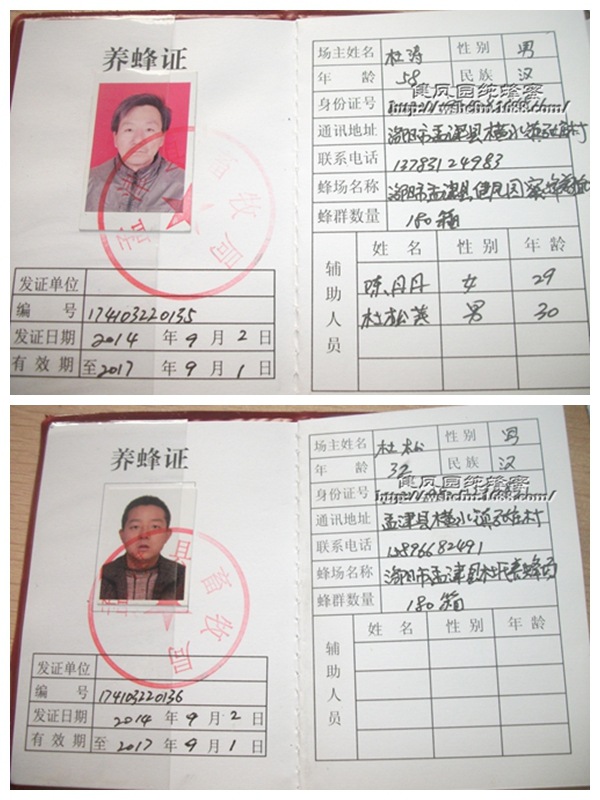 养蜂证
发证单位
编 号 174103220135
发证日期 2014 年 9 月 2 日
有效期 至 2017 年 9 月 1 日
畜牧局
场主姓名 杜涛 性别 男
年 龄 58 民族 汉
健凤园纯蜂蜜
身份证号
通讯地址 洛阳市孟津县横水镇
联系电话 13783124983
蜂场名称 洛阳市孟津县健凤园
蜂群数量 180箱
辅助人员 姓 名 性别 年 龄
陈丹丹 女 29
男 30
养蜂证
发证单位
编 号 174103220136
发证日期 2014 年 9 月 2 日
有效期 至 2017 年 9 月 1 日
畜牧局
场主姓名 杜松 性别 男
年 龄 32 民族 汉
健凤园纯蜂蜜
身份证号
通讯地址 孟津县横水镇
联系电话 15896682491
蜂场名称 洛阳市孟津县
蜂群数量 180箱
辅助人员 姓 名 性别 年 龄